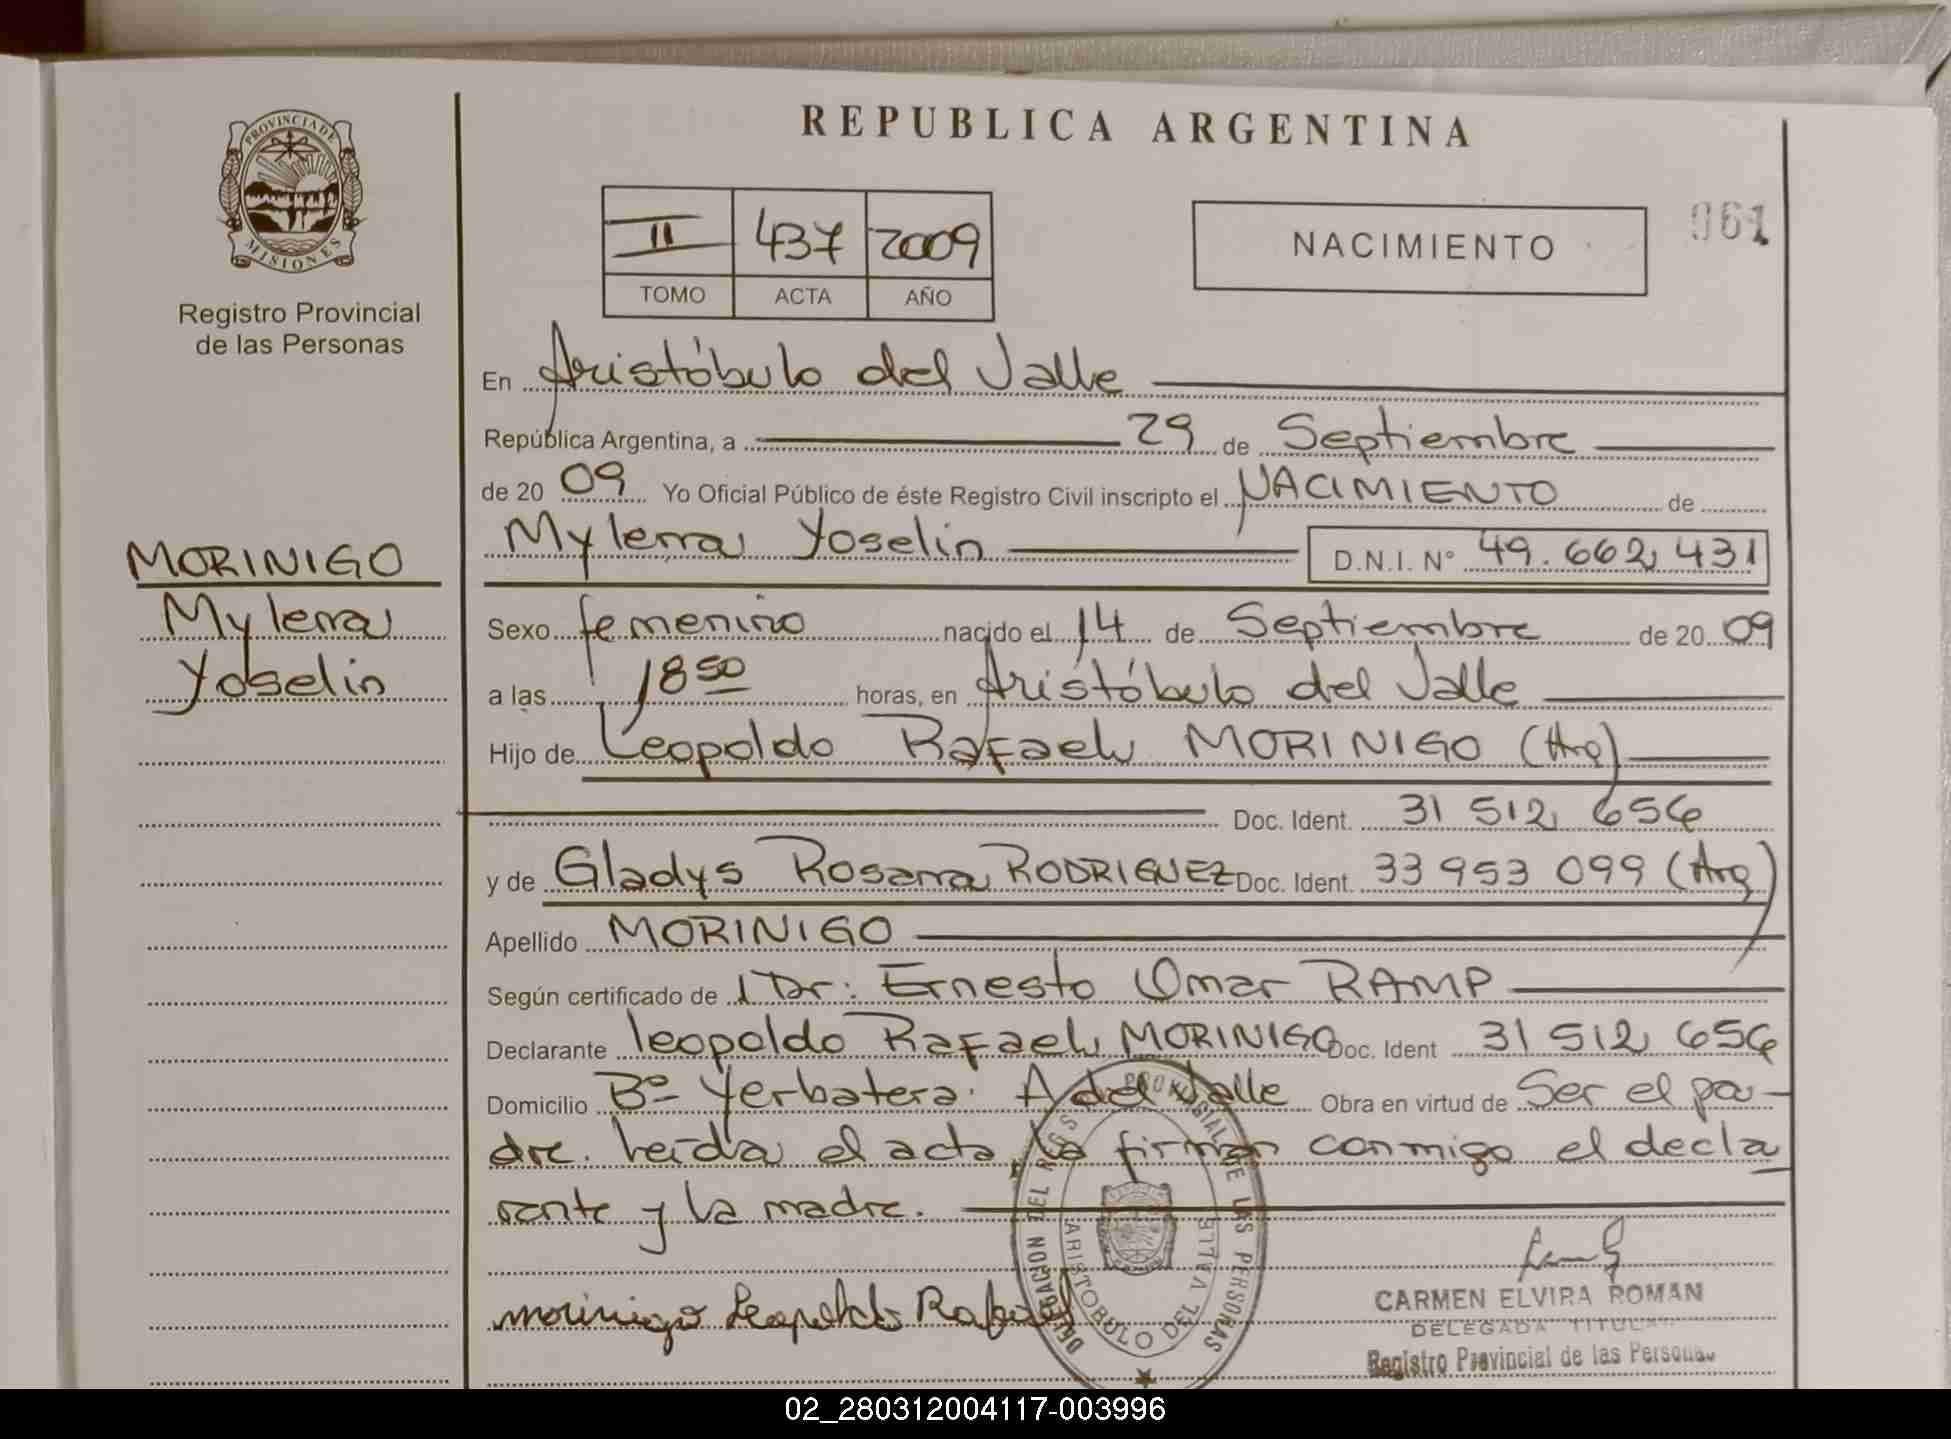 REPUBLICA ARGENTINA
PROVINCIA DE MISIONES
Registro Provincial
de las Personas
II 437 2009
TOMO ACTA AÑO
NACIMIENTO
061
En Aristóbulo del Valle
República Argentina, a 29 de Septiembre
de 20 09 Yo Oficial Público de éste Registro Civil inscripto el NACIMIENTO de
Mylena Yoselin D.N.I. N° 49.662.431
MORINIGO
Mylena
Yoselin
Sexo femenino nacido el 14 de Septiembre de 20 09
a las 18 50 horas, en Aristóbulo del Valle
Hijo de Leopoldo Rafael MORINIGO (Arg)
Doc. Ident. 31 512 656
y de Gladys Rosana RODRIGUEZ Doc. Ident. 33 953 099 (Arg)
Apellido MORINIGO
Según certificado de Dr: Ernesto Omar RAMP
Declarante Leopoldo Rafael MORINIGO Doc. Ident 31 512 656
Domicilio Bº Yerbatera. A del Valle Obra en virtud de Ser el pa-
dre. Leída el acta, la firman conmigo el decla
rante y la madre.
morinigo Leopoldo Rafael
DELEGACION DEL REG PROVINCIAL DE LAS PERSONAS
ARISTOBULO DEL VALLE
CARMEN ELVIRA ROMAN
DELEGADA TITULAR
Registro Provincial de las Personas
02_280312004117-003996